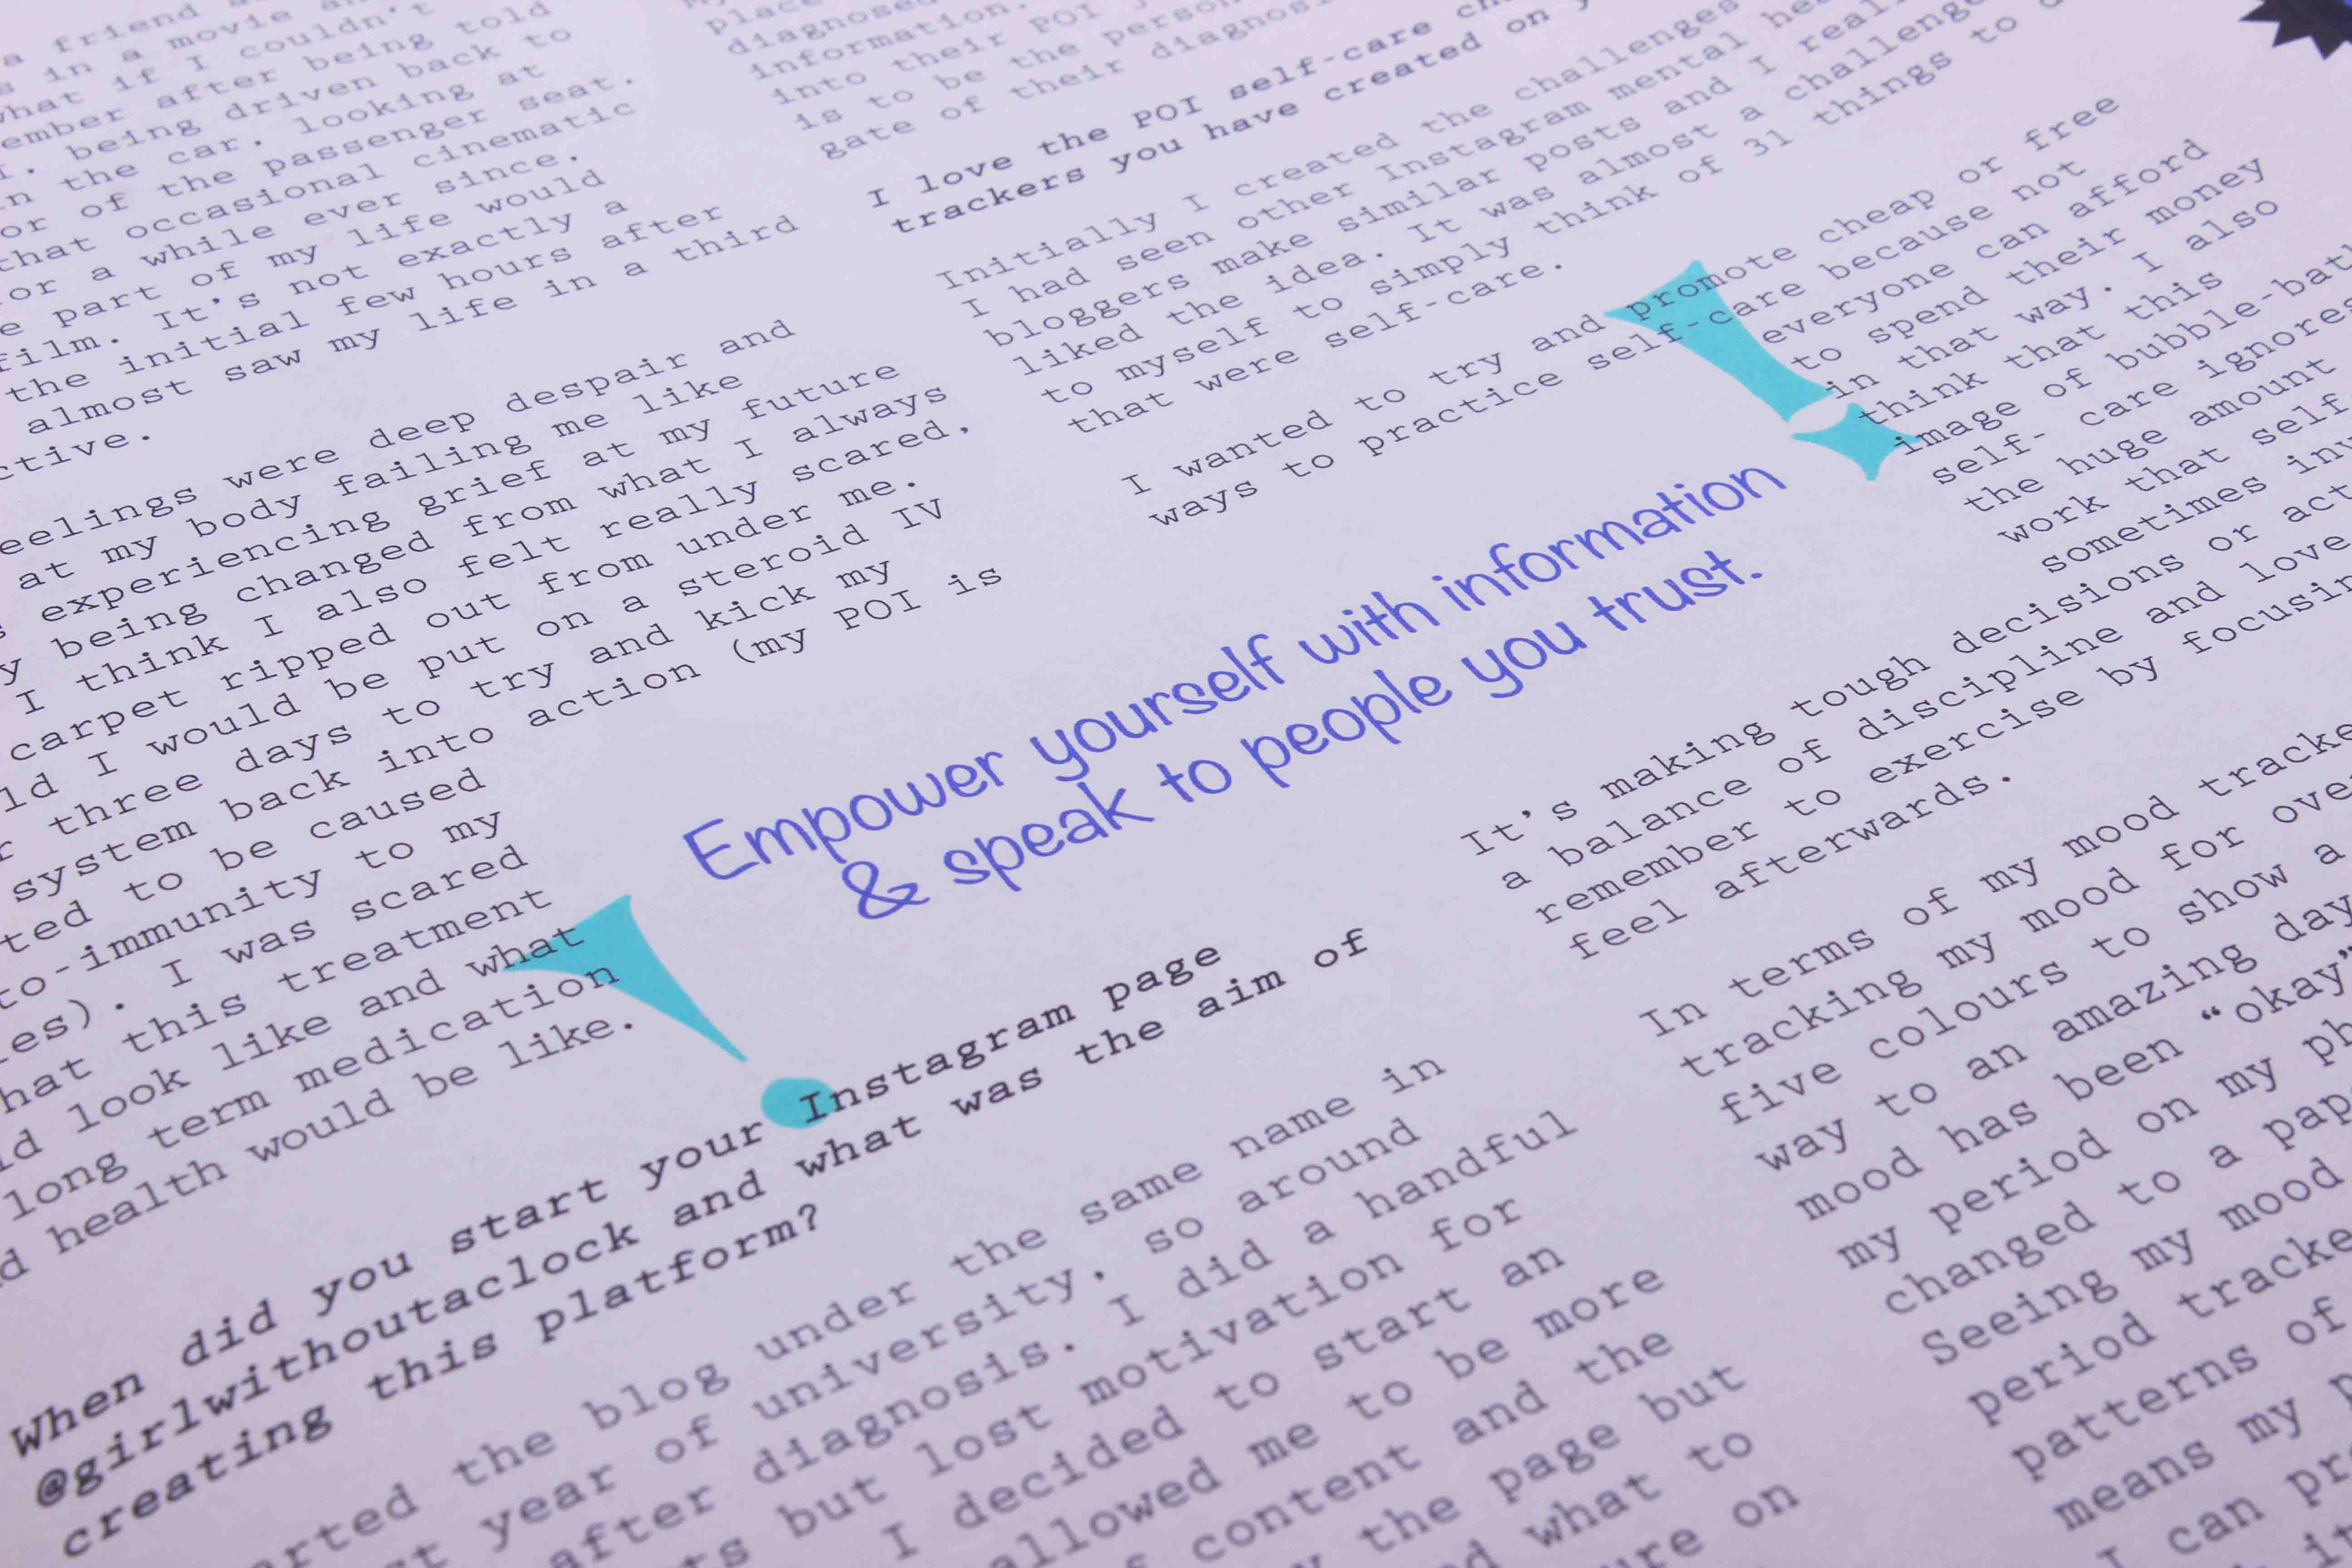 a friend
in a movie
what if I couldn't
ember after being told
being driven back to
in the car, looking at
or of the passenger seat.
that occasional cinematic
for a while ever since.
e part of my life would
film. It's not exactly a
the initial few hours after
almost saw my life in a third
ctive.
eelings were deep despair and
at my body failing me like
experiencing grief at my future
y being changed from what I always
I think I also felt really scared,
carpet ripped out from under me.
ld I would be put on a steroid IV
r three days to try and kick my
system back into action (my POI is
ted to be caused
to-immunity to my
es). I was scared
hat this treatment
ld look like and what
long term medication
d health would be like.
When did you start your Instagram page
@girlwithoutaclock and what was the aim of
creating this platform?
arted the blog under the same name in
st year of university, so around
after diagnosis. I did a handful
ts but lost motivation for
I decided to start an
allowed me to be more
f content and the
y the page but
d what to
ure on
Empower yourself with information
& speak to people you trust.
place
diagnosed
information.
into their POI
is to be the person
gate of their diagnosi
I love the POI self-care ch
trackers you have created on
Initially I created the challenges
I had seen other Instagram mental hea
bloggers make similar posts and I reall
liked the idea. It was almost a challenge
to myself to simply think of 31 things to
that were self-care.
I wanted to try and promote cheap or free
ways to practice self-care because not
everyone can afford
to spend their money
in that way. I also
think that this
image of bubble-bath
self- care ignores
the huge amount
work that self
sometimes inv
It's making tough decisions or act
a balance of discipline and love
remember to exercise by focusin
feel afterwards.
In terms of my mood tracke
tracking my mood for ove
five colours to show a
way to an amazing day
mood has been “okay”
my period on my ph
changed to a pap
Seeing my mood
period tracke
patterns of
means my p
I can pr
it